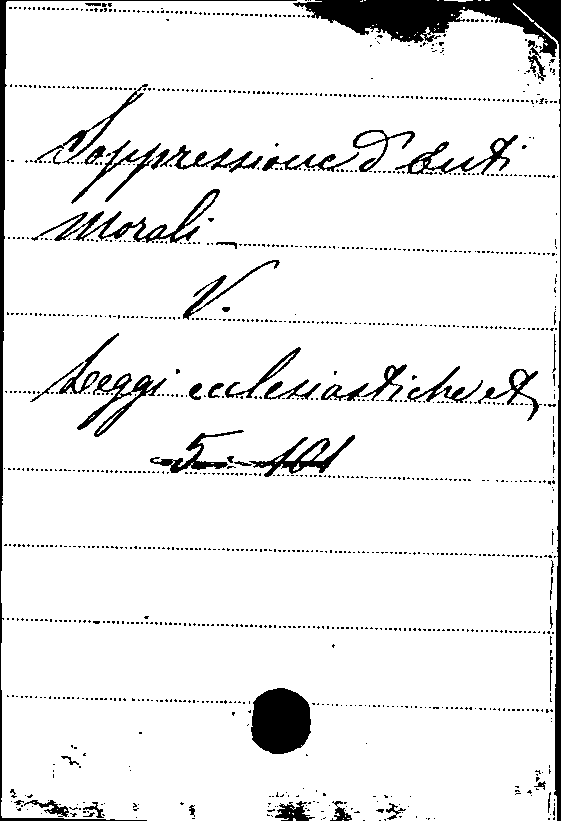 Soppressione d'Enti
Morali
V.
Leggi ecclesiastiche et
5 i 161